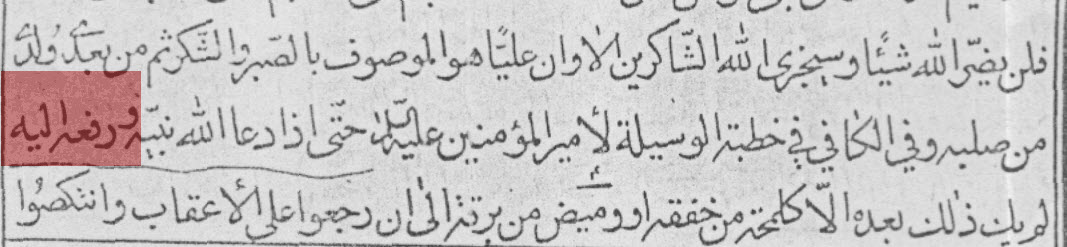 فلن يضرّ الله شيئًا وسيجزى الله الشّاكرين الا وان عليًّا هو الموصوف بالصّبر والشّكر ثم من بعده ولدى
من صلبه وفي الكافي في خطبة الوسيلة لأمير المؤمنين عليه السّلام حتّى اذا دعا الله نبيّه ورفعه اليه
لم يك ذلك بعده الّا كلمحة من خفقة او وميض من برقة الى ان رجعوا على الأعقاب وانتكصُوا